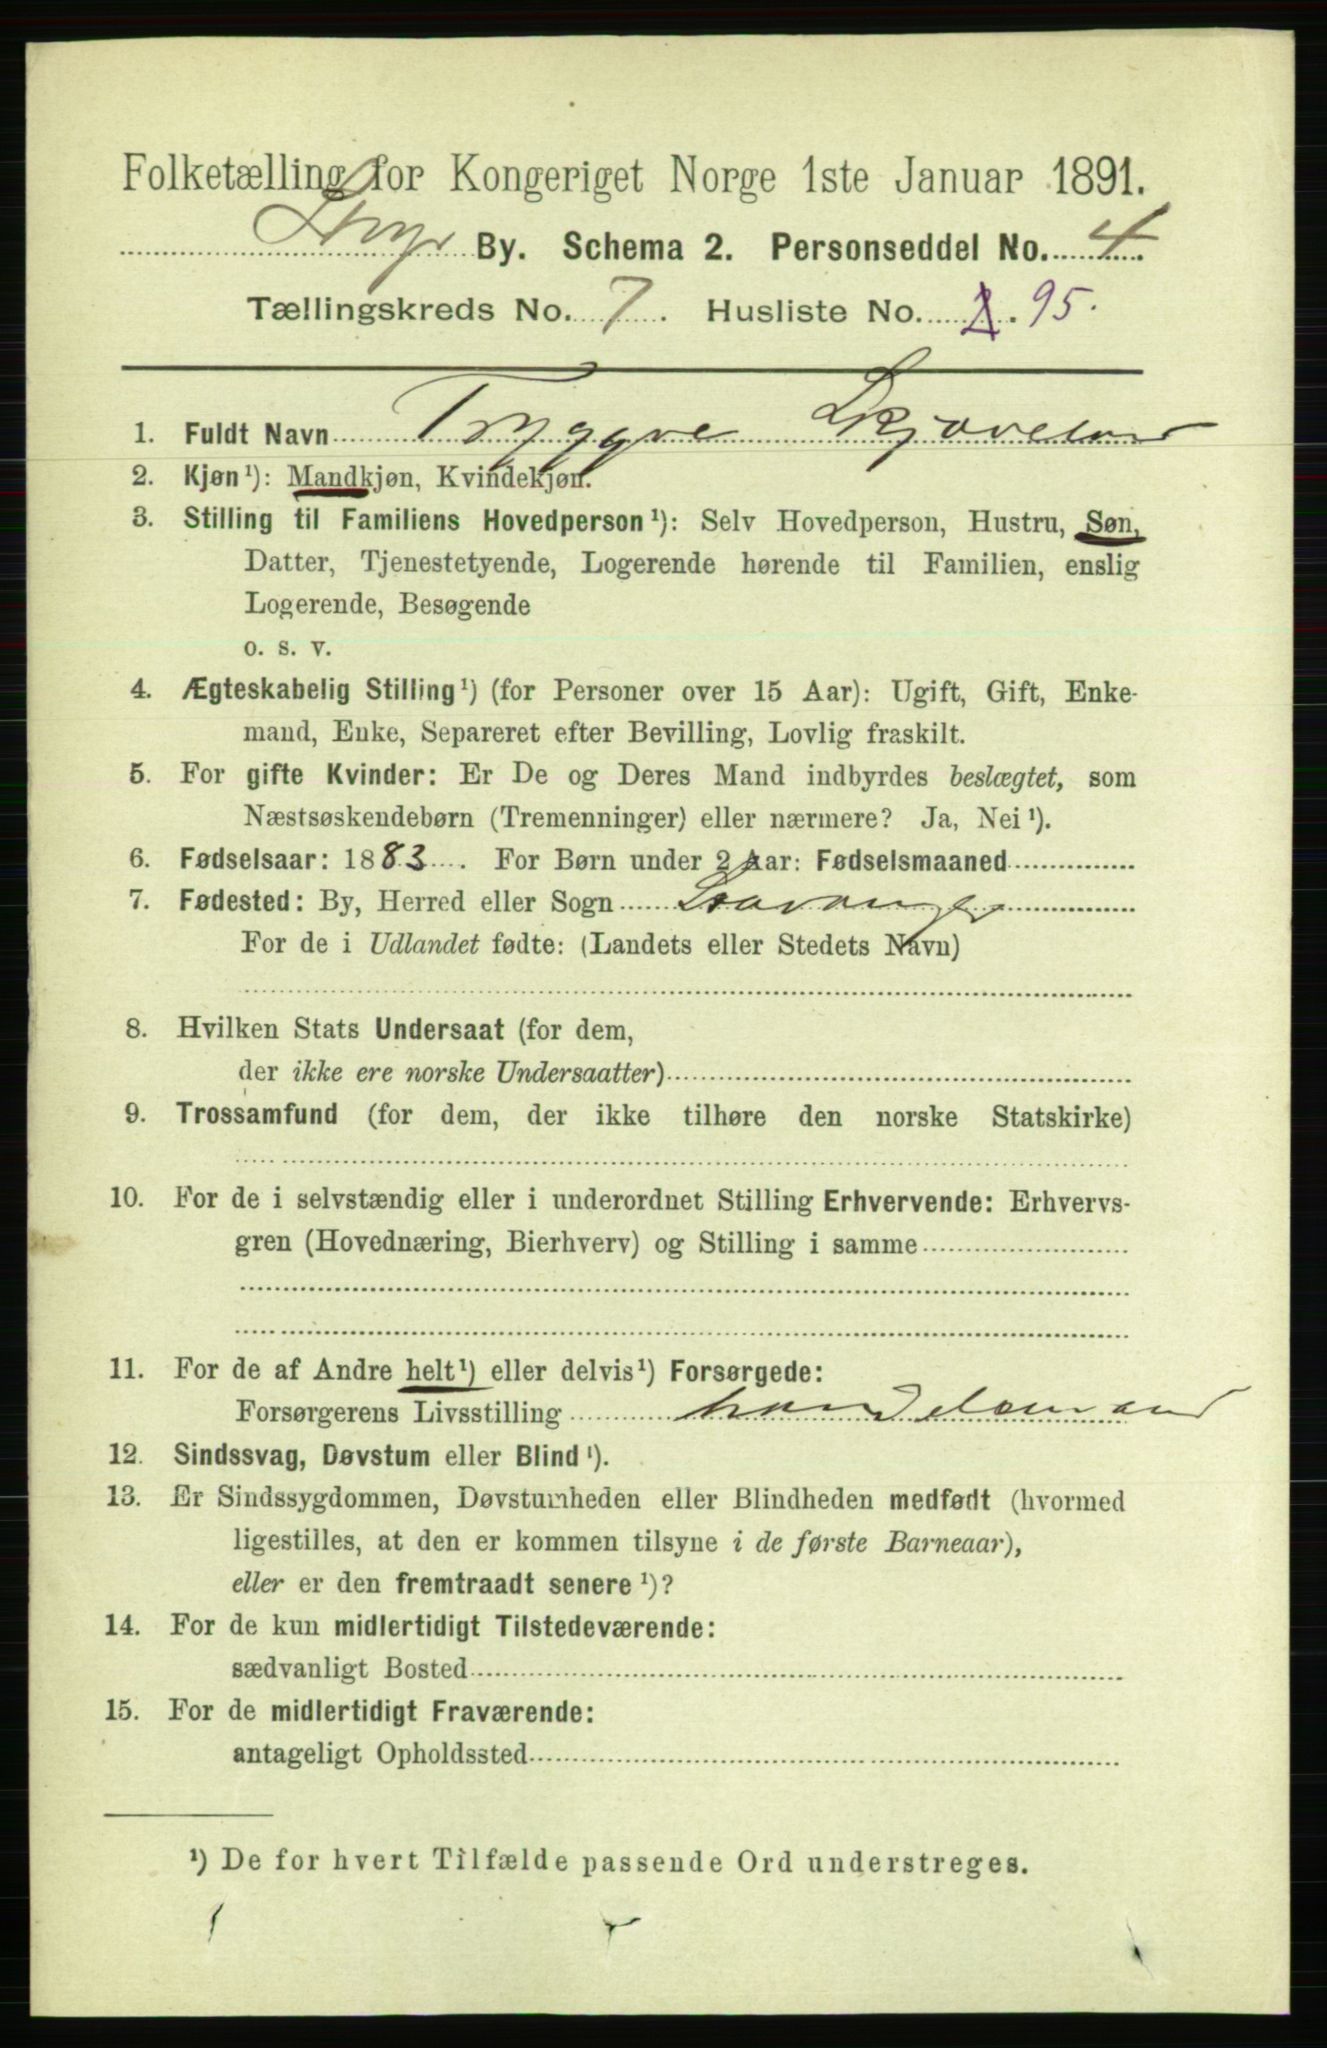 Folketælling for Kongeriget Norge 1ste Januar 1891.
By. Schema 2. Personseddel No. 4.
Tællingskreds No. 7. Husliste No. 2. 95.
1. Fuldt Navn Tryggve
2. Kjøn¹): Mandkjøn, Kvindekjøn.
3. Stilling til Familiens Hovedperson¹): Selv Hovedperson, Hustru, Søn,
Datter, Tjenestetyende, Logerende hørende til Familien, enslig
Logerende, Besøgende
o. s. v.
4. Ægteskabelig Stilling¹) (for Personer over 15 Aar): Ugift, Gift, Enke-
mand, Enke, Separeret efter Bevilling, Lovlig fraskilt.
5. For gifte Kvinder: Er De og Deres Mand indbyrdes beslægtet, som
Næstsøskendebørn (Tremenninger) eller nærmere? Ja, Nei¹).
6. Fødselsaar: 1883. For Børn under 2 Aar: Fødselsmaaned
7. Fødested: By, Herred eller Sogn Stavanger
For de i Udlandet fødte: (Landets eller Stedets Navn)
8. Hvilken Stats Undersaat (for dem,
der ikke ere norske Undersaatter)
9. Trossamfund (for dem, der ikke tilhøre den norske Statskirke)
10. For de i selvstændig eller i underordnet Stilling Erhvervende: Erhvervs-
gren (Hovednæring, Bierhverv) og Stilling i samme
11. For de af Andre helt¹) eller delvis¹) Forsørgede:
Forsørgerens Livsstilling handelsmand
12. Sindssvag, Døvstum eller Blind¹).
13. Er Sindssygdommen, Døvstumheden eller Blindheden medfødt (hvormed
ligestilles, at den er kommen tilsyne i de første Barneaar),
eller er den fremtraadt senere¹)?
14. For de kun midlertidigt Tilstedeværende:
sædvanligt Bosted
15. For de midlertidigt Fraværende:
antageligt Opholdssted
¹) De for hvert Tilfælde passende Ord understreges.